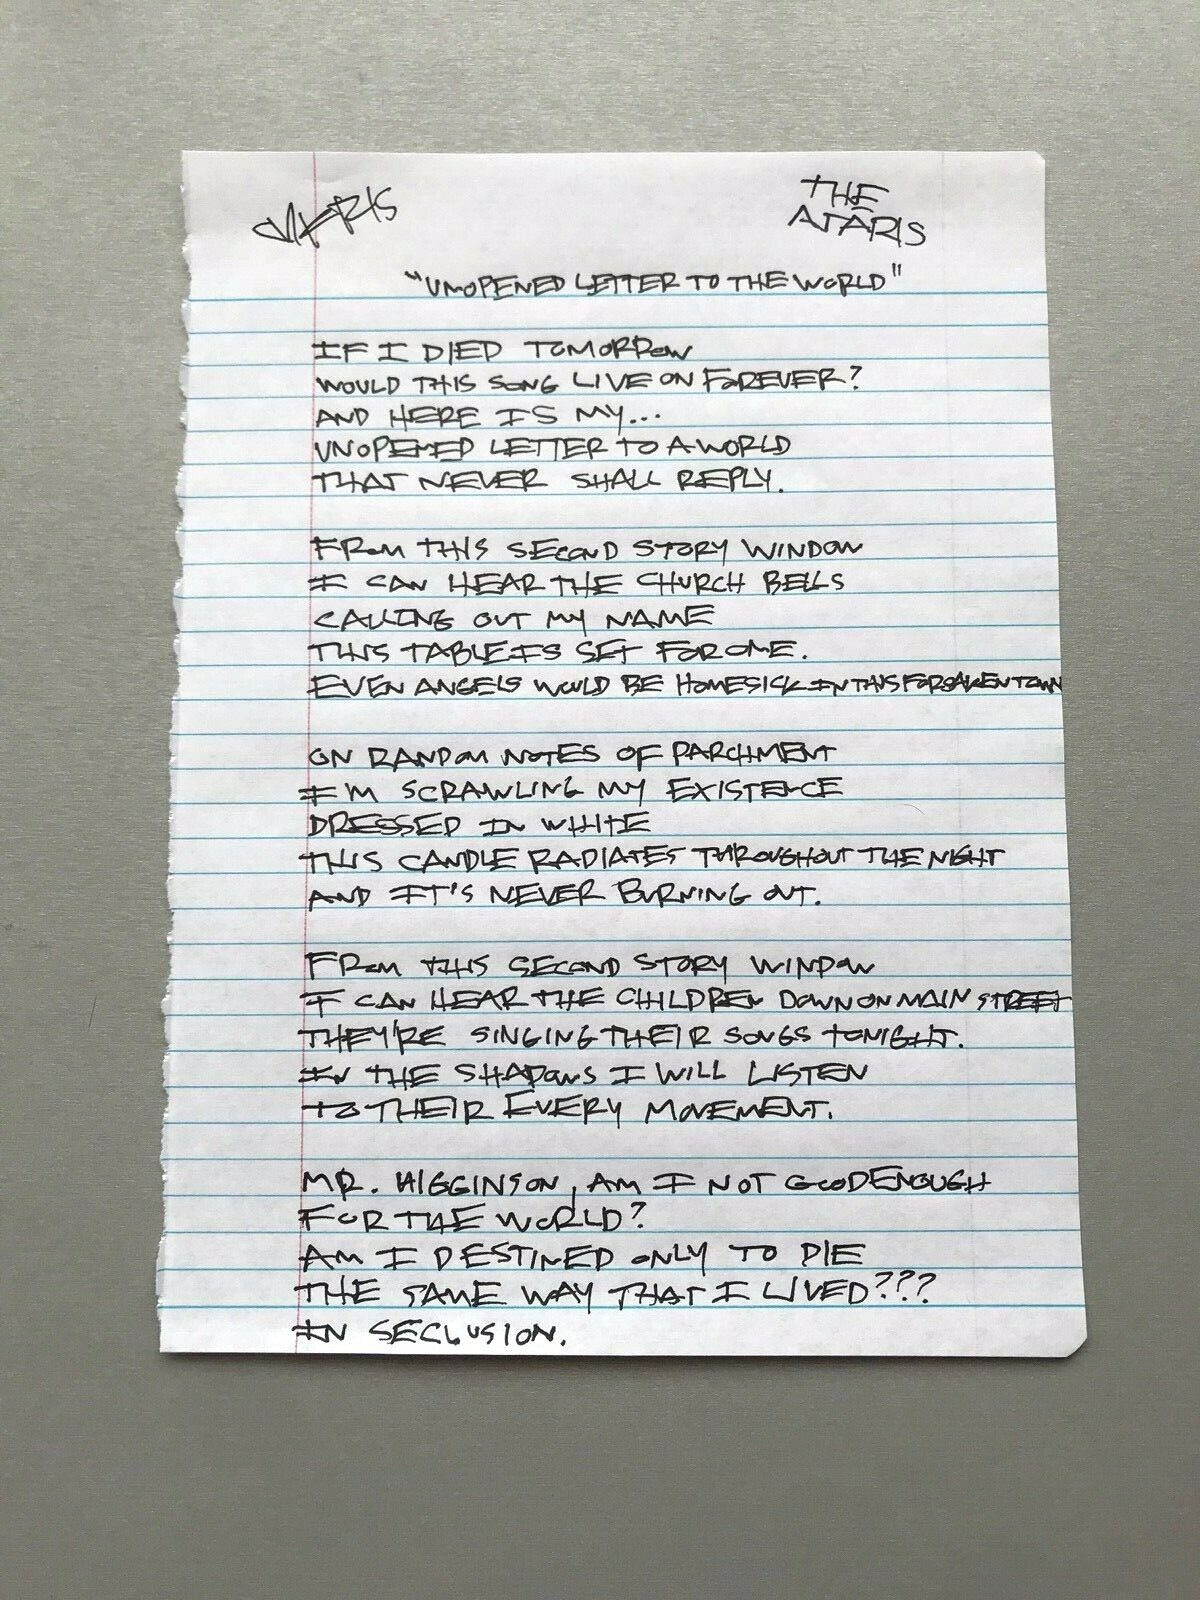 KRIS
THE
ATARIS
"UNOPENED LETTER TO THE WORLD"
IF I DIED TOMORROW
WOULD THIS SONG LIVE ON FOREVER?
AND HERE IS MY...
UNOPENED LETTER TO A WORLD
THAT NEVER SHALL REPLY.
FROM THIS SECOND STORY WINDOW
I CAN HEAR THE CHURCH BELLS
CALLING OUT MY NAME
THIS TABLE IS SET FOR ONE.
EVEN ANGELS WOULD BE HOMESICK IN THIS FORSAKEN TOWN
ON RANDOM NOTES OF PARCHMENT
I'M SCRAWLING MY EXISTENCE
DRESSED IN WHITE
THIS CANDLE RADIATES THROUGHOUT THE NIGHT
AND IT'S NEVER BURNING OUT.
FROM THIS SECOND STORY WINDOW
I CAN HEAR THE CHILDREN DOWN ON MAIN STREET
THEY'RE SINGING THEIR SONGS TONIGHT.
IN THE SHADOWS I WILL LISTEN
TO THEIR EVERY MOVEMENT.
MR. HIGGINSON, AM I NOT GOOD ENOUGH
FOR THE WORLD?
AM I DESTINED ONLY TO DIE
THE SAME WAY THAT I LIVED???
IN SECLUSION.